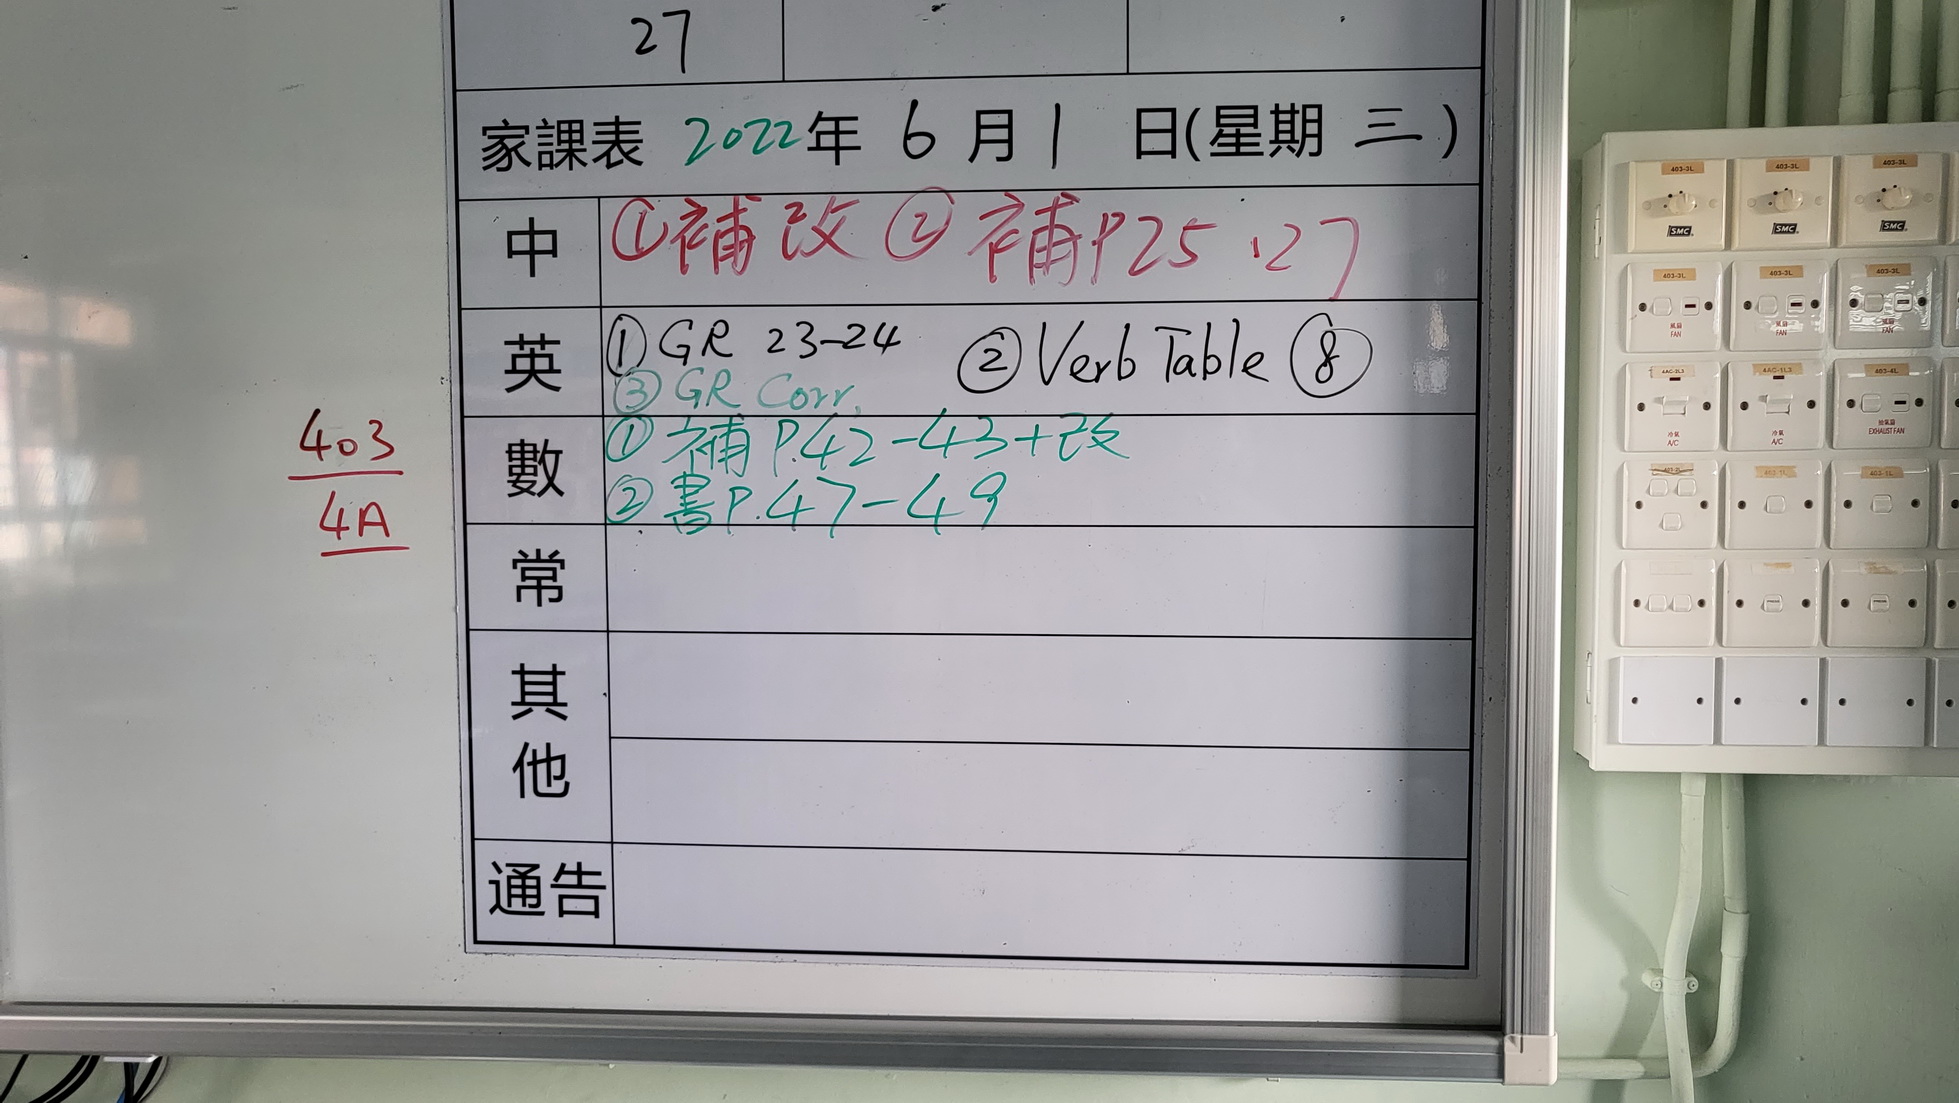 27
家課表 2022年 6月1日(星期三)
中 ①補改 ②補P25、27
英 ①GR 23-24 ②Verb Table ⑧
③GR Corr.
數 ①補P.42-43+改
②書P.47-49
常
其他
通告
403
4A
403-3L 403-3L 403-3L
SMC SMC SMC
403-3L 403-3L 403-3L
風扇 風扇 風扇
FAN FAN FAN
4AC-2L3 4AC-1L3 403-4L
冷氣 冷氣 抽氣扇
A/C A/C EXHAUST FAN
403-1L 403-1L